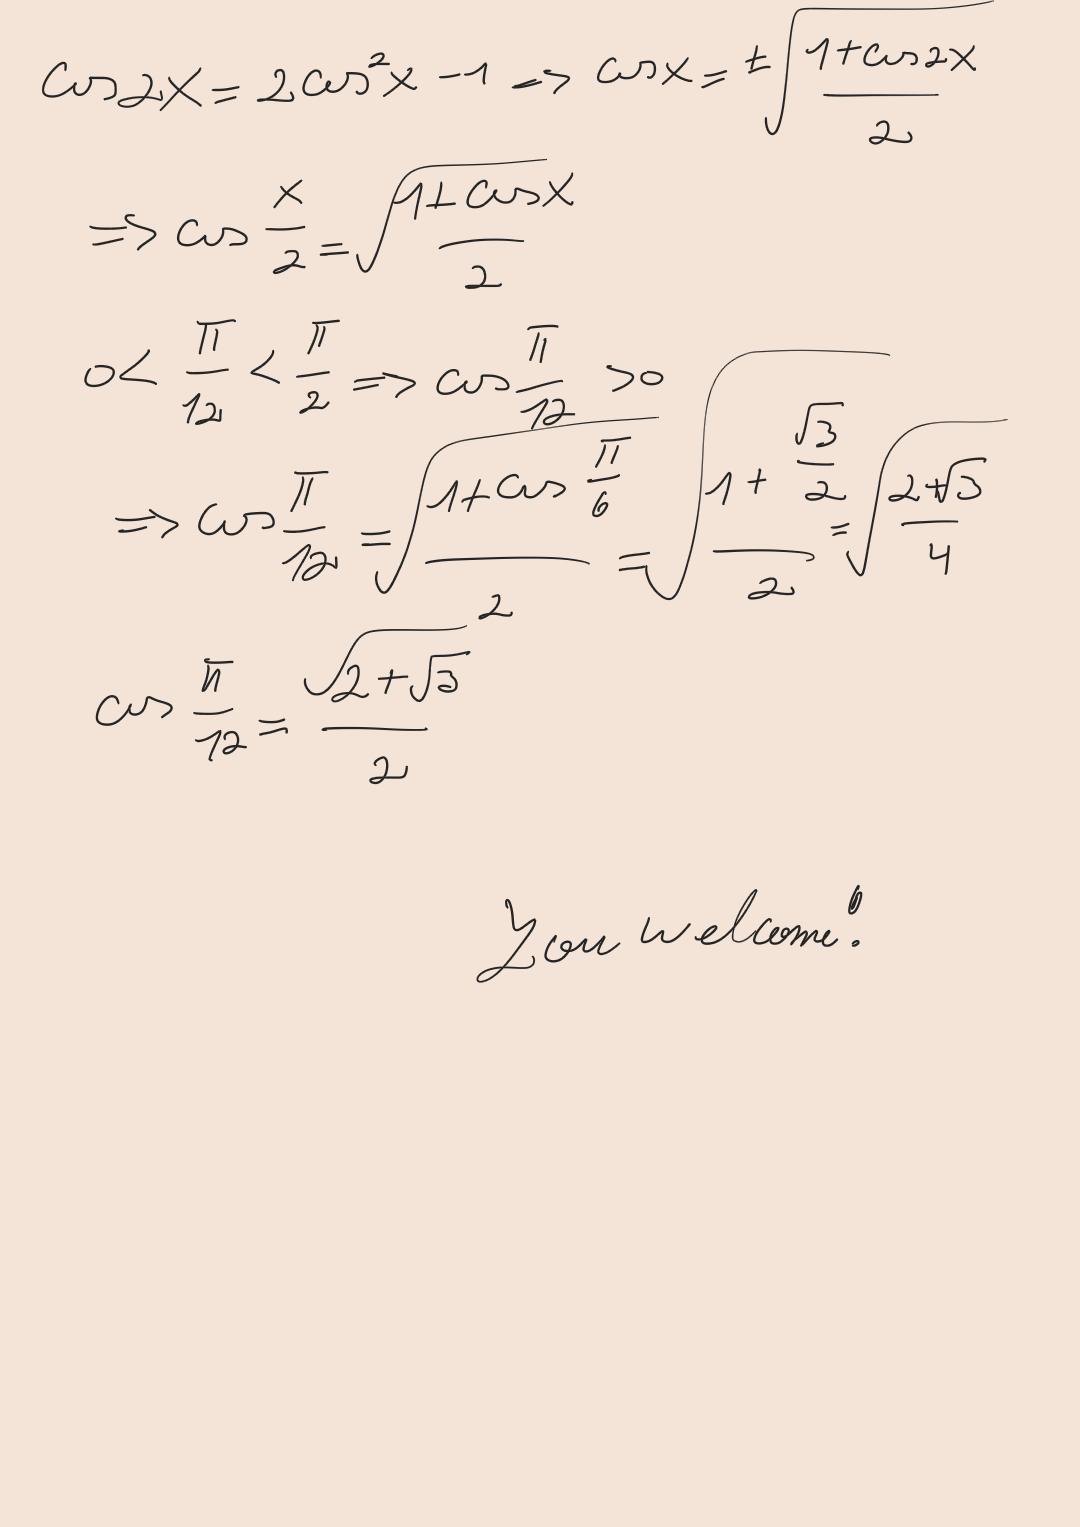 cos2x = 2cos²x - 1 => cosx = ±√((1+cos2x)/2)
=> cos x/2 = √((1+cosx)/2)
0 < π/12 < π/2 => cos π/12 > 0
=> cos π/12 = √((1+cos π/6)/2) = √((1+√3/2)/2) = √((2+√3)/4)
cos π/12 = √(2+√3)/2
You welcome!